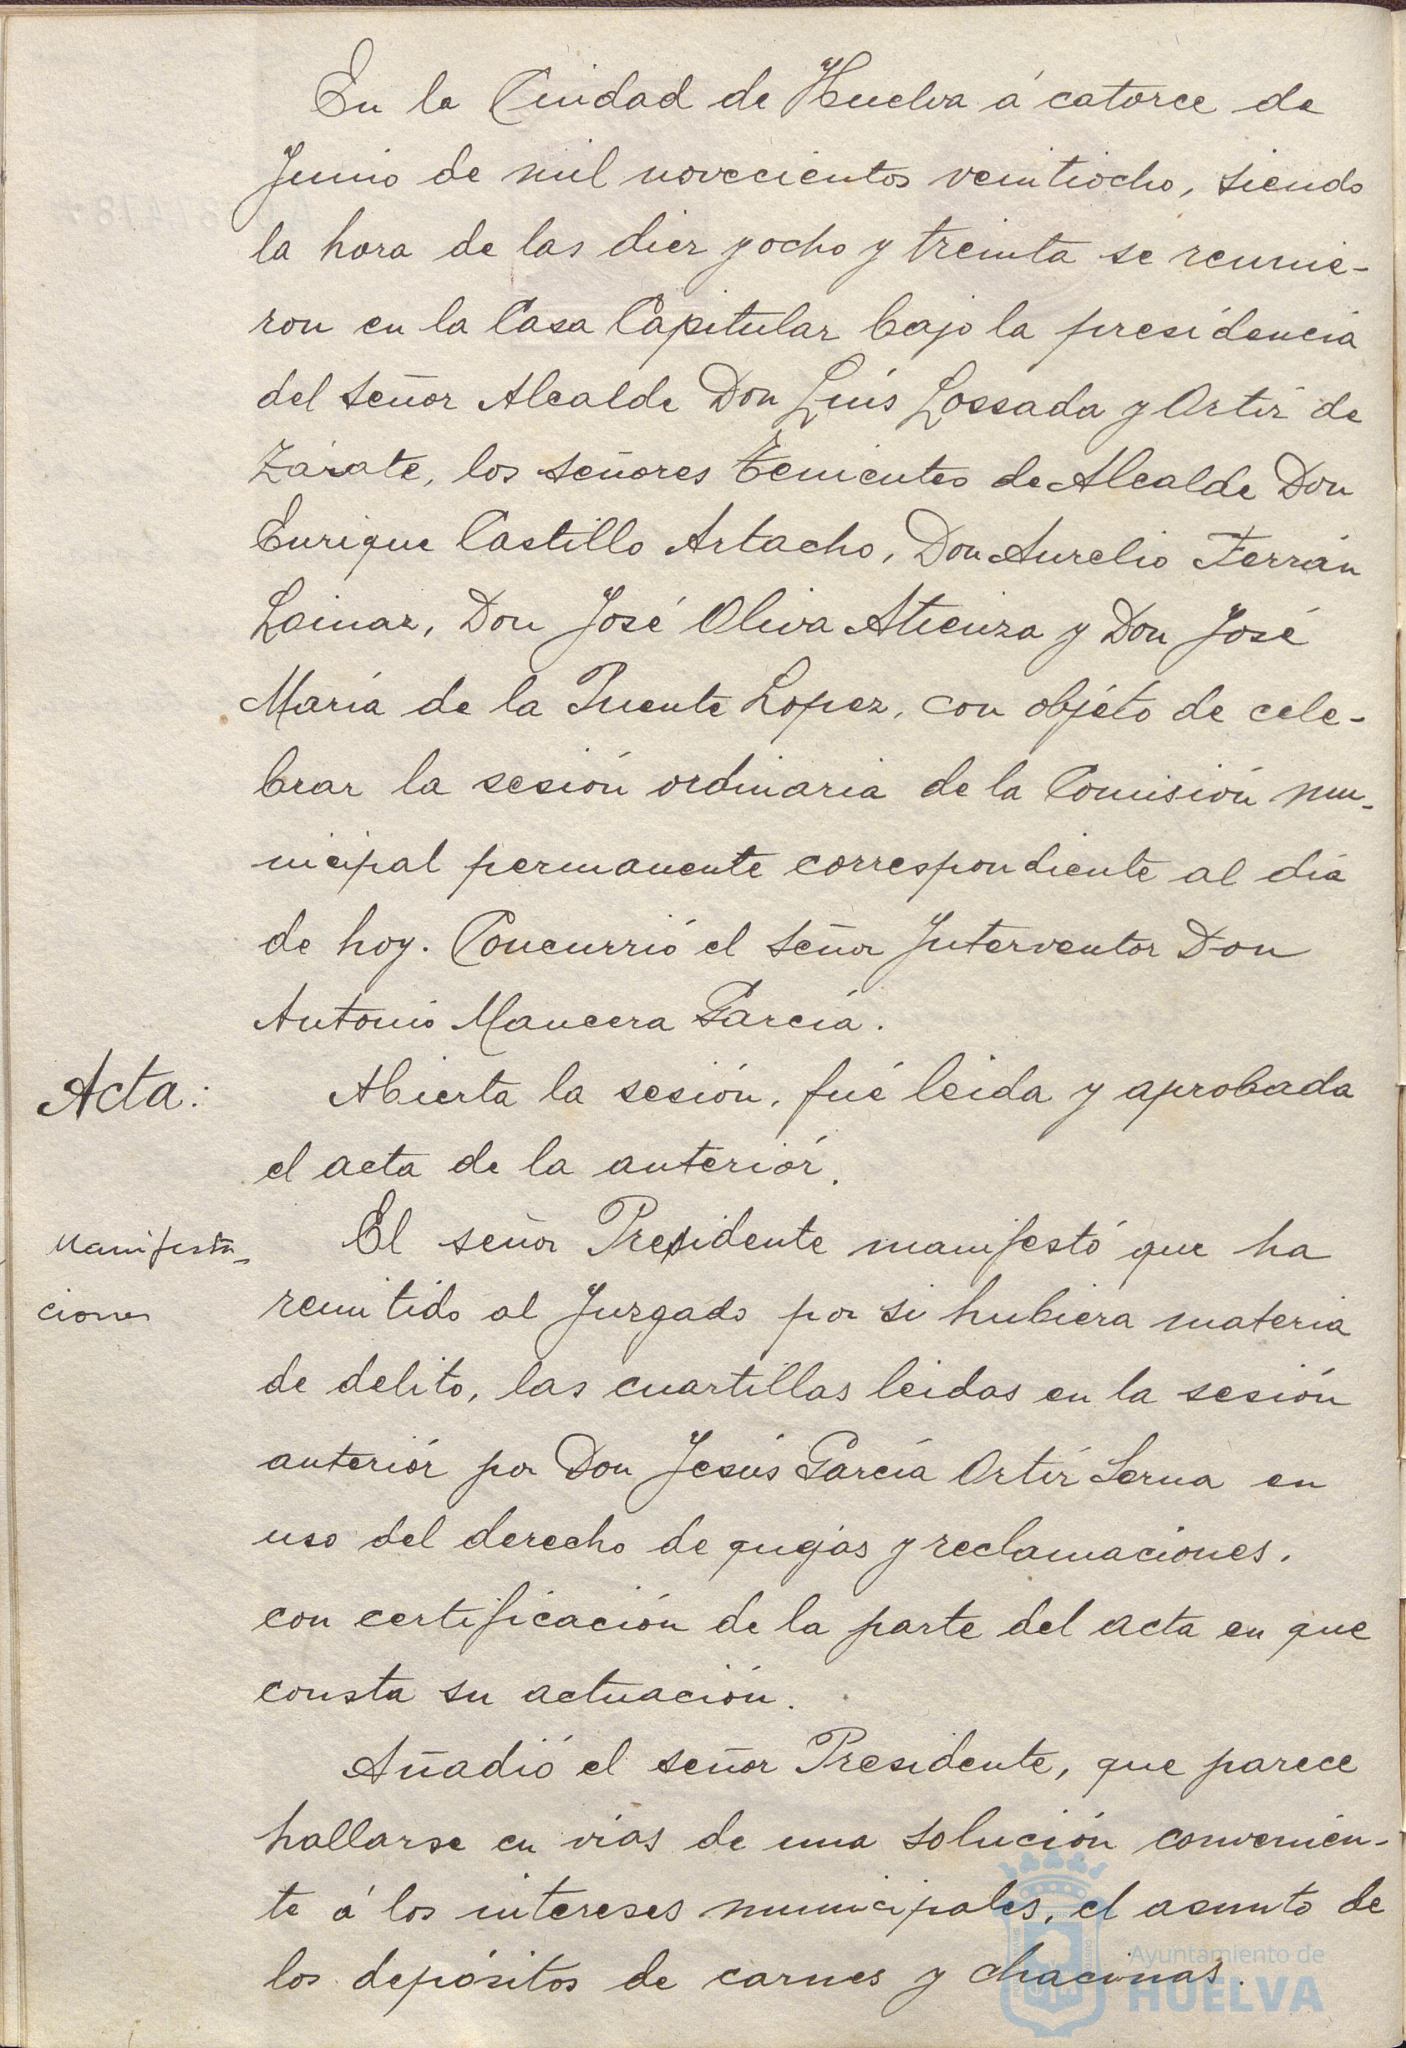 En la Ciudad de Huelva á catorce de
Junio de mil novecientos veintiocho, siendo
la hora de las diez y ocho y treinta se reunie-
ron en la Casa Capitular bajo la presidencia
del señor Alcalde Don Luís Lossada y Ortiz de
Zárate, los señores Tenientes de Alcalde Don
Enrique Castillo Artacho, Don Aurelio Ferrán
Lainar, Don José Oliva Atienza y Don José
María de la Puente Lopez, con objéto de cele-
brar la sesión ordinaria de la Comisión mu-
nicipal permanente correspondiente al día
de hoy. Concurrió el señor Interventor Don
Antonio Mancera García.
Acta:
Abierta la sesión, fué leida y aprobada
el acta de la anteriór.
Manifesta-
ciones
El señor Presidente manifestó que ha
remitido al Juzgado por si hubiera materia
de delito, las cuartillas leidas en la sesión
anteriór por Don Jesús García Ortíz Serna en
uso del derecho de quejas y reclamaciones,
con certificación de la parte del acta en que
consta su actuación.
Añadió el señor Presidente, que parece
hallarse en vías de una solución convenién-
te á los intereses municipales, el asunto de
los depósitos de carnes y chacinas.
Ayuntamiento de
HUELVA